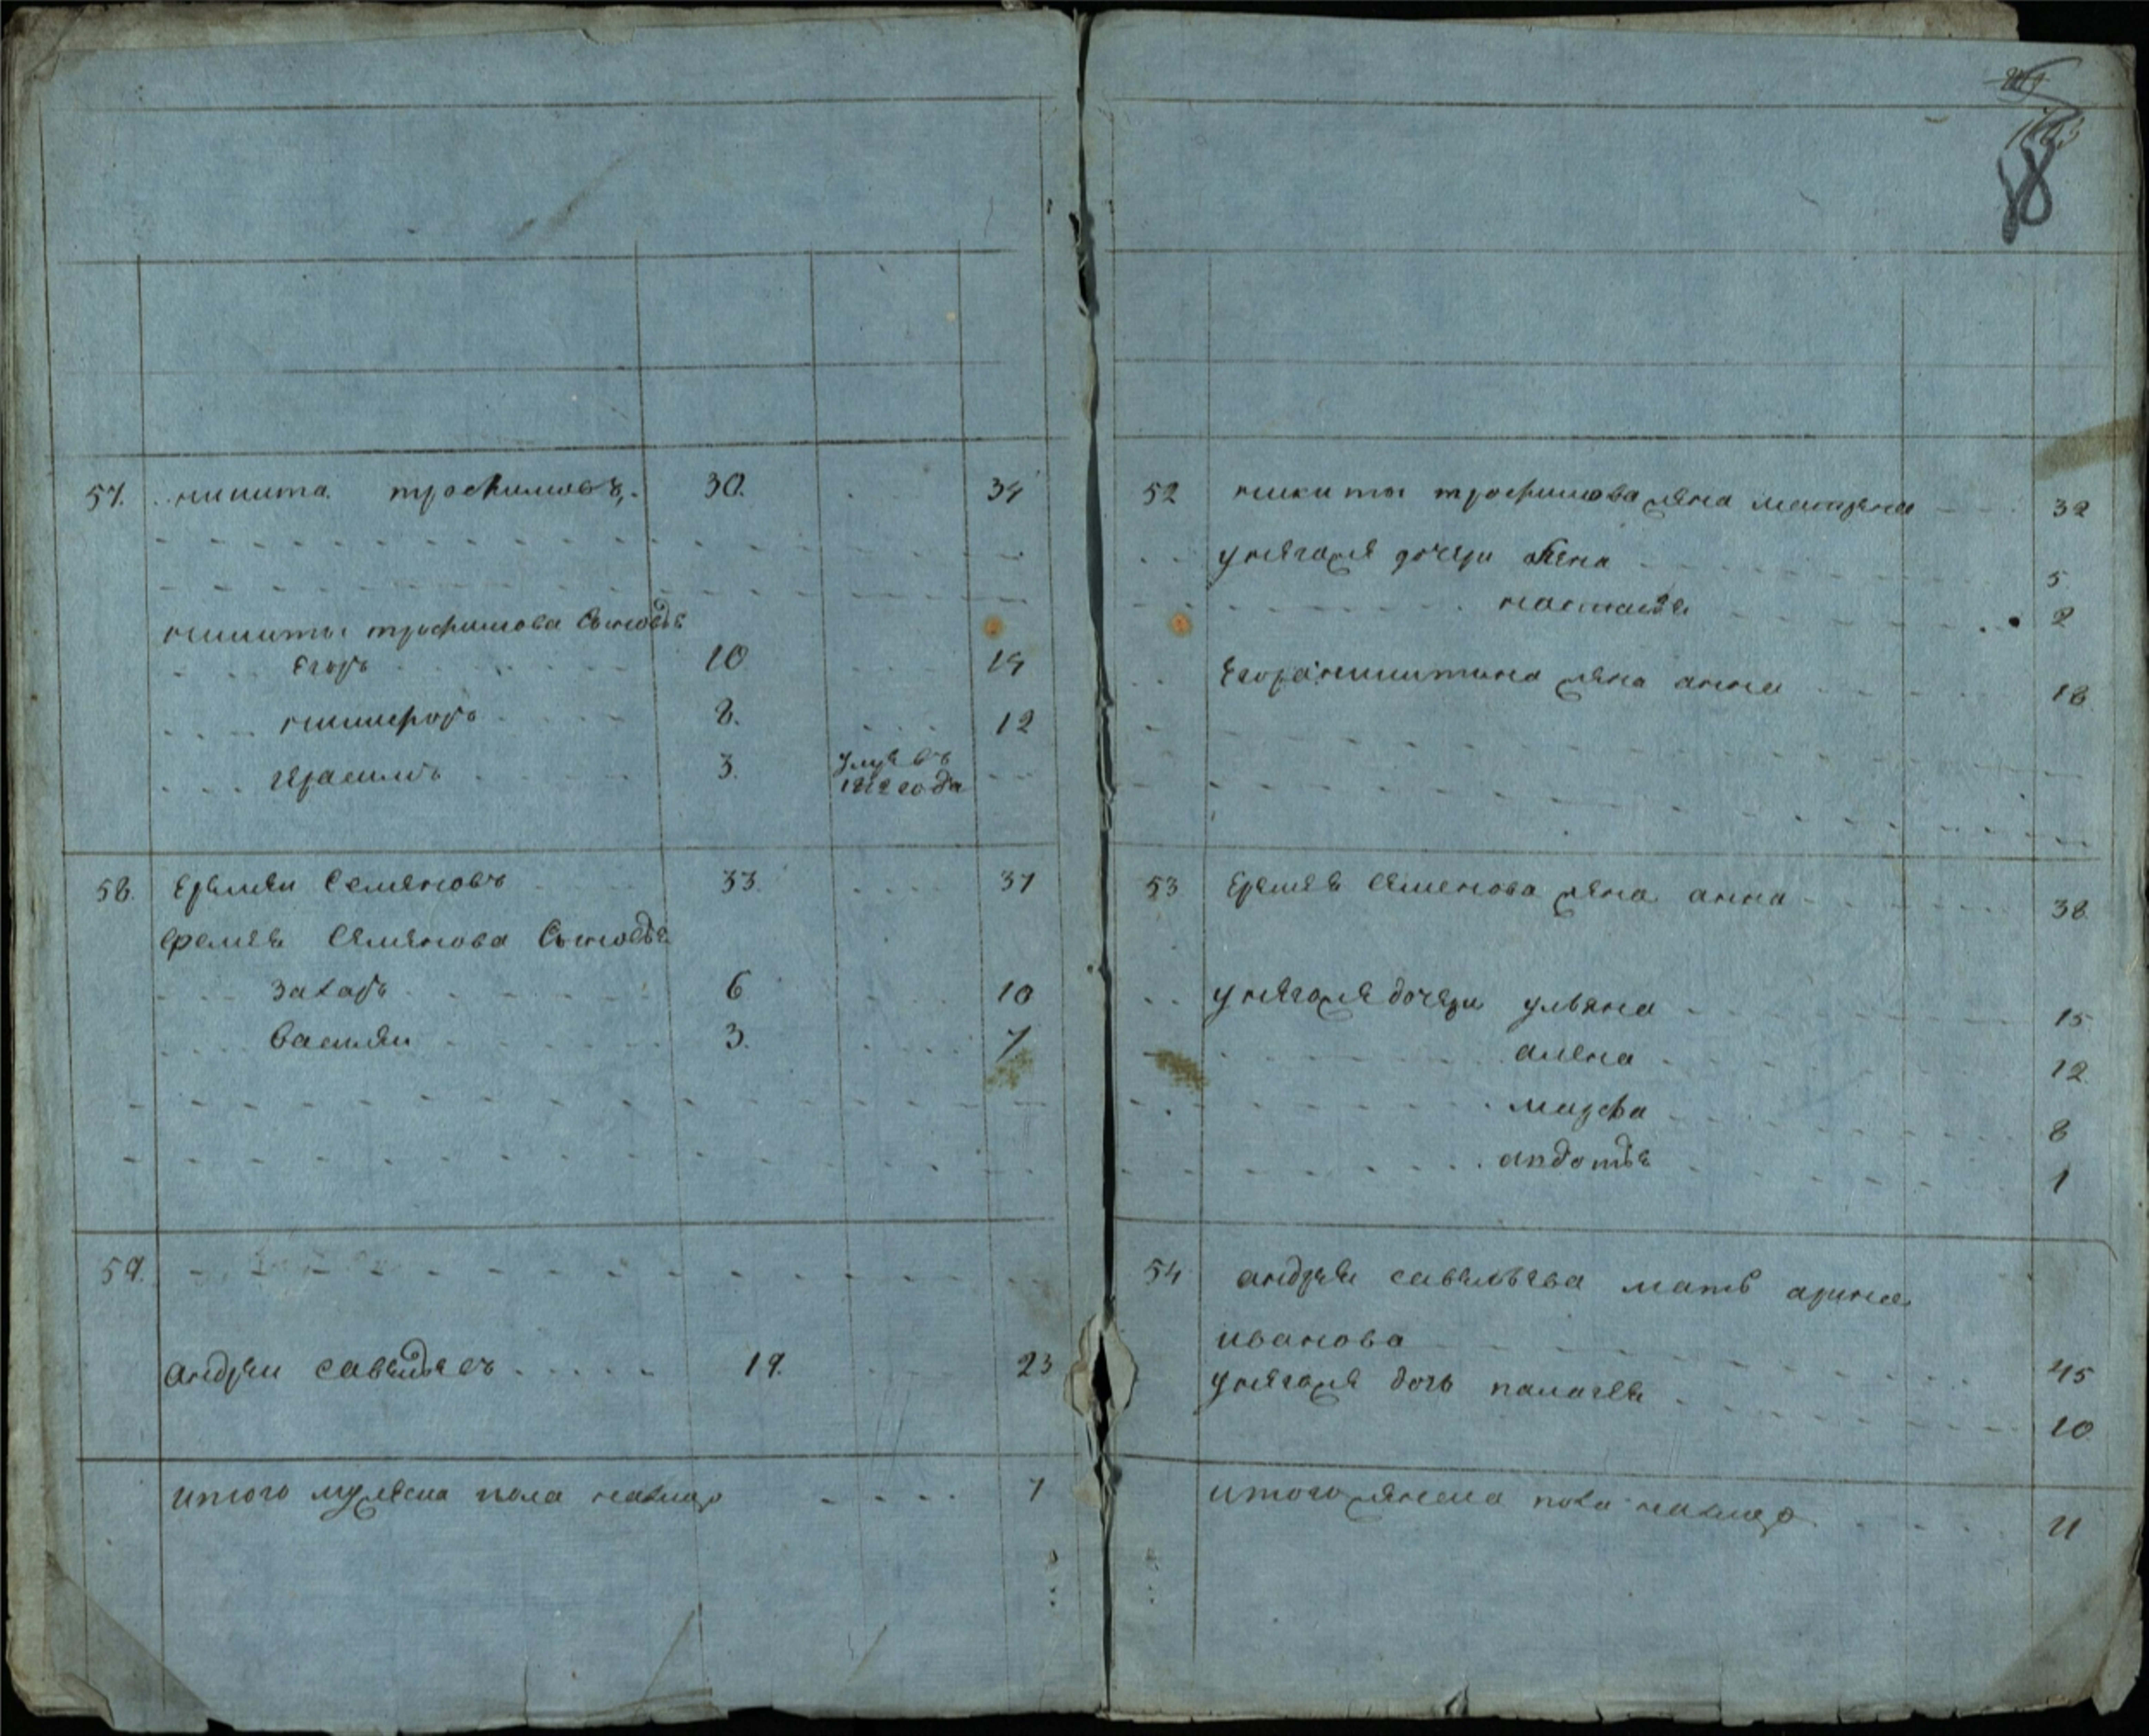 88
57. никита трофимовъ 30. 34
никиты трофимова сыновья
егоръ 10 14
никифоръ 8. 12
герасимъ 3. умре въ
1812 года
58. еремеи семеновъ 33. 37
еремея семенова сыновья
захаръ 6 10
васили 3. 7
59.
андреи савельевъ 19. 23
итого мужеска пола налицо 7
52 никиты трофимова жена матрена 32
у негоже дочери 5
настасья 2
егора никитина жена анна 18
53 еремея семенова жена анна 38
у негоже дочери ульяна 15
алена 12
марфа 8
авдотья 1
54 андрея савельева мать арина
иванова 45
у негоже дочь палагея 10
итого женска пола налицо 11